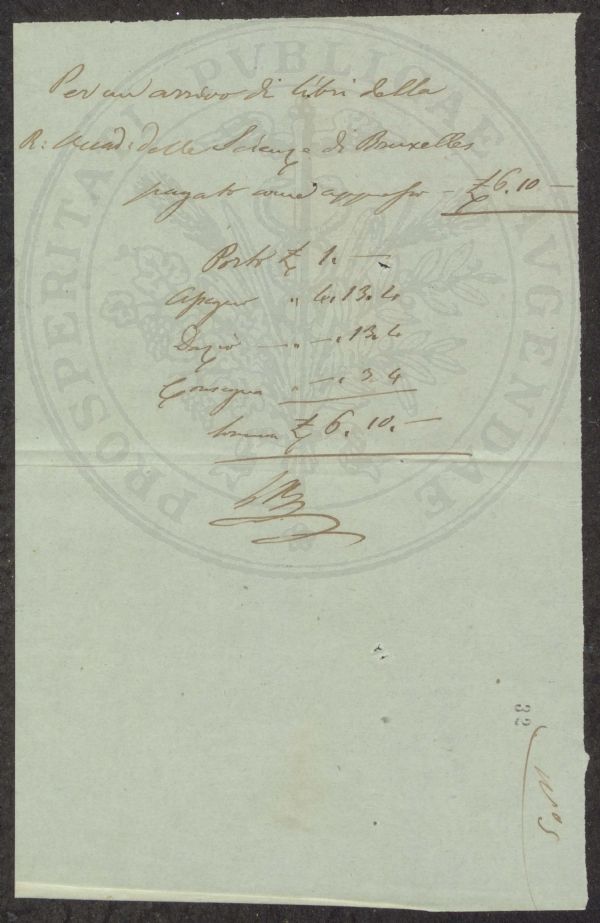 Per un arrivo di libri della
R: Accad: delle Scienze di Bruxelles
pagato come appresso - £ 6. 10 —
Porto £ 1. —
" 4. 13. 4
Dazio — " — . 13. 4
Consegna " — . 3. 4
Somma £ 6. 10. —
32
N° 5
PROSPERITATI PVBLICAE AVGENDAE